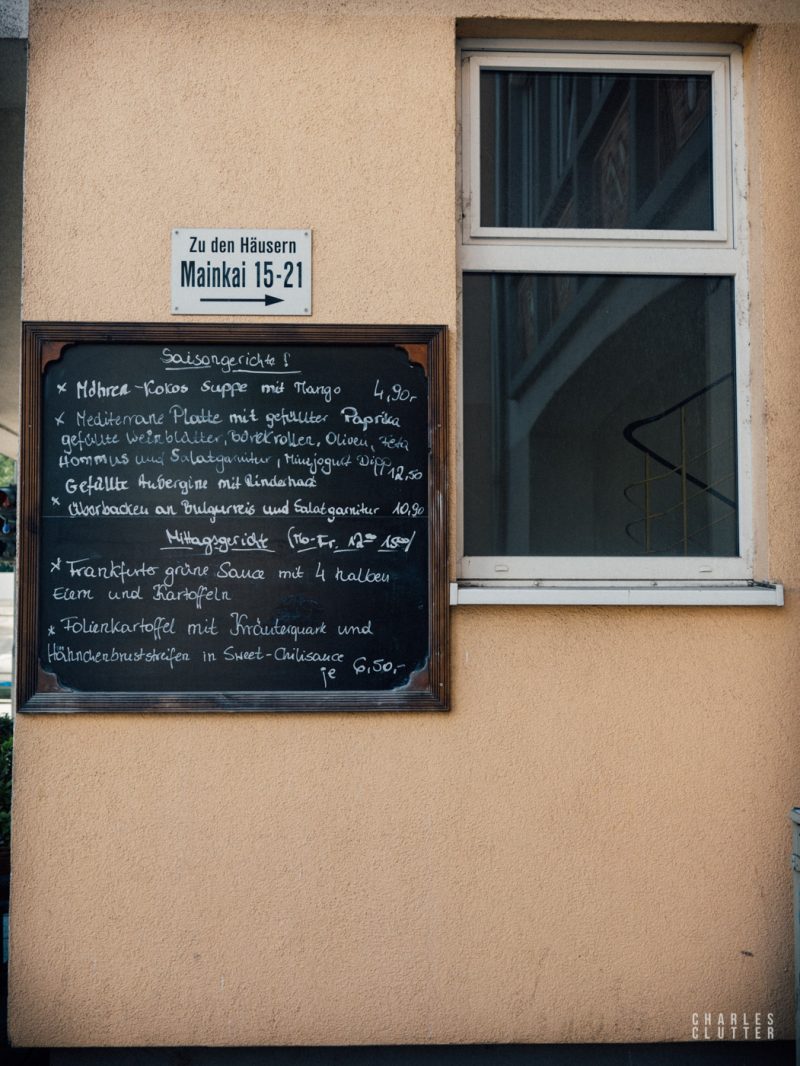 Zu den Häusern
Mainkai 15-21
Saisongerichte!
x Möhren-Kokos Suppe mit Mango 4,90,-
x Mediterrane Platte mit gefüllter Paprika
gefüllte Weinblätter, Börekrollen, Oliven, Feta
Hommus und Salatgarnitur, Minzjogurt Dipp 12,50
Gefüllte Aubergine mit Rinderhack
x Überbacken an Bulgurreis und Salatgarnitur 10,90
Mittagsgericht (Mo-Fr. 12⁰⁰ 15⁰⁰)
x Frankfurter grüne Sauce mit 4 halben
Eiern und Kartoffeln
x Folienkartoffel mit Kräuterquark und
Hähnchenbruststreifen in Sweet-Chilisauce
je 6,50,-
CHARLES
CLUTTER